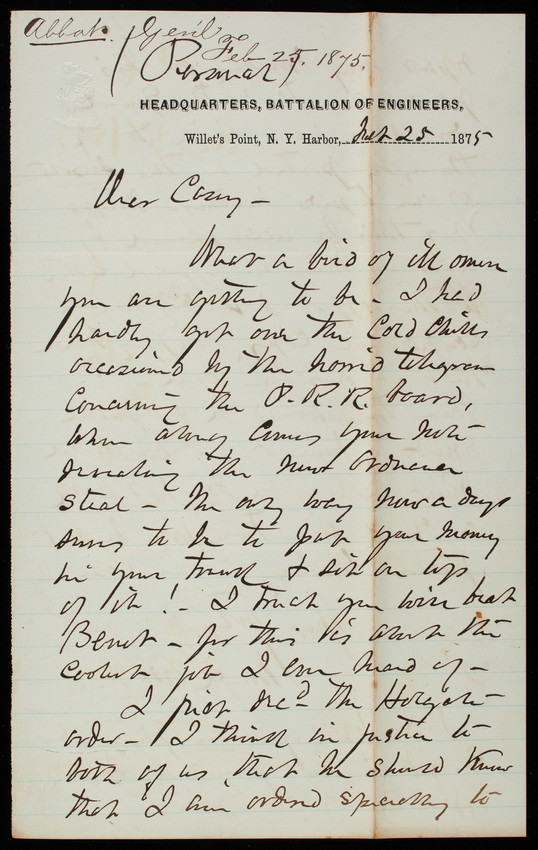 Abbot. Gen'l to
Feb 25. 1875.
(Personal)
HEADQUARTERS, BATTALION OF ENGINEERS,
Willet's Point, N. Y. Harbor, Feb 25 1875
Dear Casey –
What a bird of ill omen
you are getting to be – I had
hardly got over the cold chills
occasioned by the horrid telegram
concerning the P. R. R. board,
when along comes your note
revealing the new Ordnance
steal – The only way now a days
seems to be to put your money
in your trunk & sit on top
of it! – I trust you will beat
Benet – for this is about the
coolest job I ever heard of –
I just rec'd the Holgate
order – I think in justice to
both of us, that he should know
that I am ordered specially to